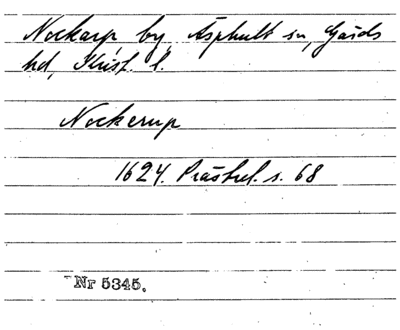 Nockarp by, Äsphult sn, Gärds
hd, Krist. l.
Nockerup
1624. Prästrel. s. 68
Nr 5345.